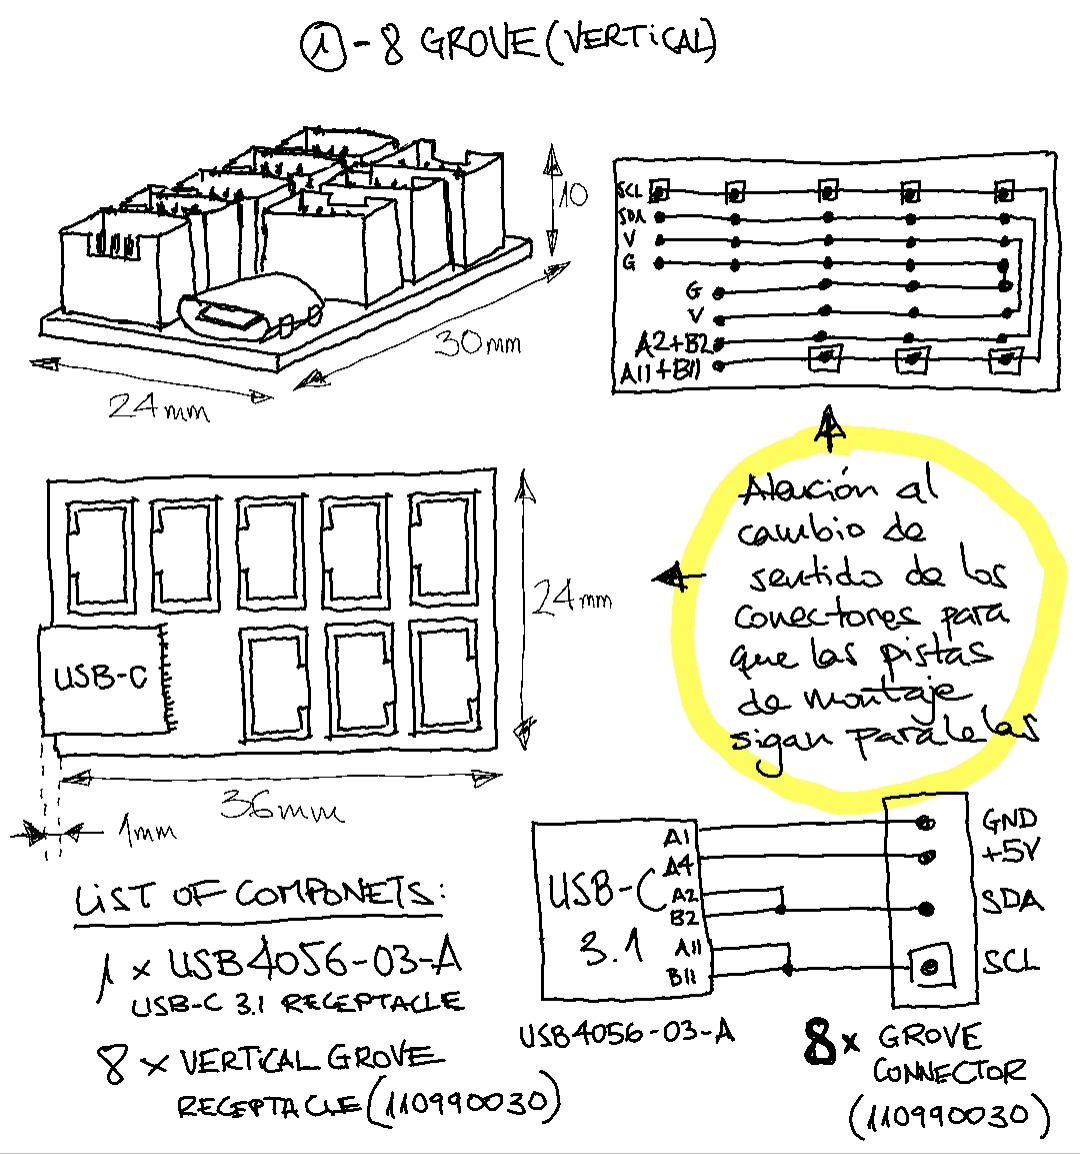 ①-8 GROVE (VERTICAL)
10
30mm
24mm
SCL
SDA
V
G
G
V
A2+B2
A11+B11
Atención al
cambio de
sentido de los
conectores para
que las pistas
de montaje
sigan paralelas
USB-C
24mm
36mm
1mm
LIST OF COMPONETS:
1 x USB4056-03-A
USB-C 3.1 RECEPTACLE
8 x VERTICAL GROVE
RECEPTACLE (110990030)
USB-C
3.1
A1
A4
A2
B2
A11
B11
USB4056-03-A
GND
+5V
SDA
SCL
8x GROVE
CONNECTOR
(110990030)